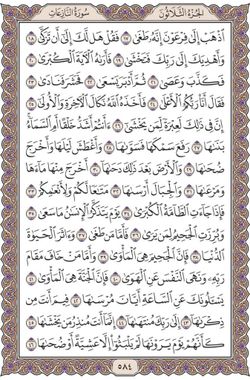 الجزء الثلاثون
سورة النازعات
اذهب إلى فرعون إنه طغى ١٧ فقل هل لك إلى أن تزكى ١٨
وأهديك إلى ربك فتخشى ١٩ فأراه الآية الكبرى ٢٠
فكذب وعصى ٢١ ثم أدبر يسعى ٢٢ فحشر فنادى ٢٣
فقال أنا ربكم الأعلى ٢٤ فأخذه الله نكال الآخرة والأولى ٢٥
إن في ذلك لعبرة لمن يخشى ٢٦ ءأنتم أشد خلقا أم السماء
بناها ٢٧ رفع سمكها فسواها ٢٨ وأغطش ليلها وأخرج
ضحاها ٢٩ والأرض بعد ذلك دحاها ٣٠ أخرج منها ماءها
ومرعاها ٣١ والجبال أرساها ٣٢ متاعا لكم ولأنعامكم ٣٣
فإذا جاءت الطامة الكبرى ٣٤ يوم يتذكر الإنسان ما سعى ٣٥
وبرزت الجحيم لمن يرى ٣٦ فأما من طغى ٣٧ وءاثر الحياة
الدنيا ٣٨ فإن الجحيم هي المأوى ٣٩ وأما من خاف مقام
ربه ونهى النفس عن الهوى ٤٠ فإن الجنة هي المأوى ٤١
يسألونك عن الساعة أيان مرساها ٤٢ فيم أنت من
ذكراها ٤٣ إلى ربك منتهاها ٤٤ إنما أنت منذر من يخشاها
٤٥ كأنهم يوم يرونها لم يلبثوا إلا عشية أو ضحاها ٤٦
٥٨٤